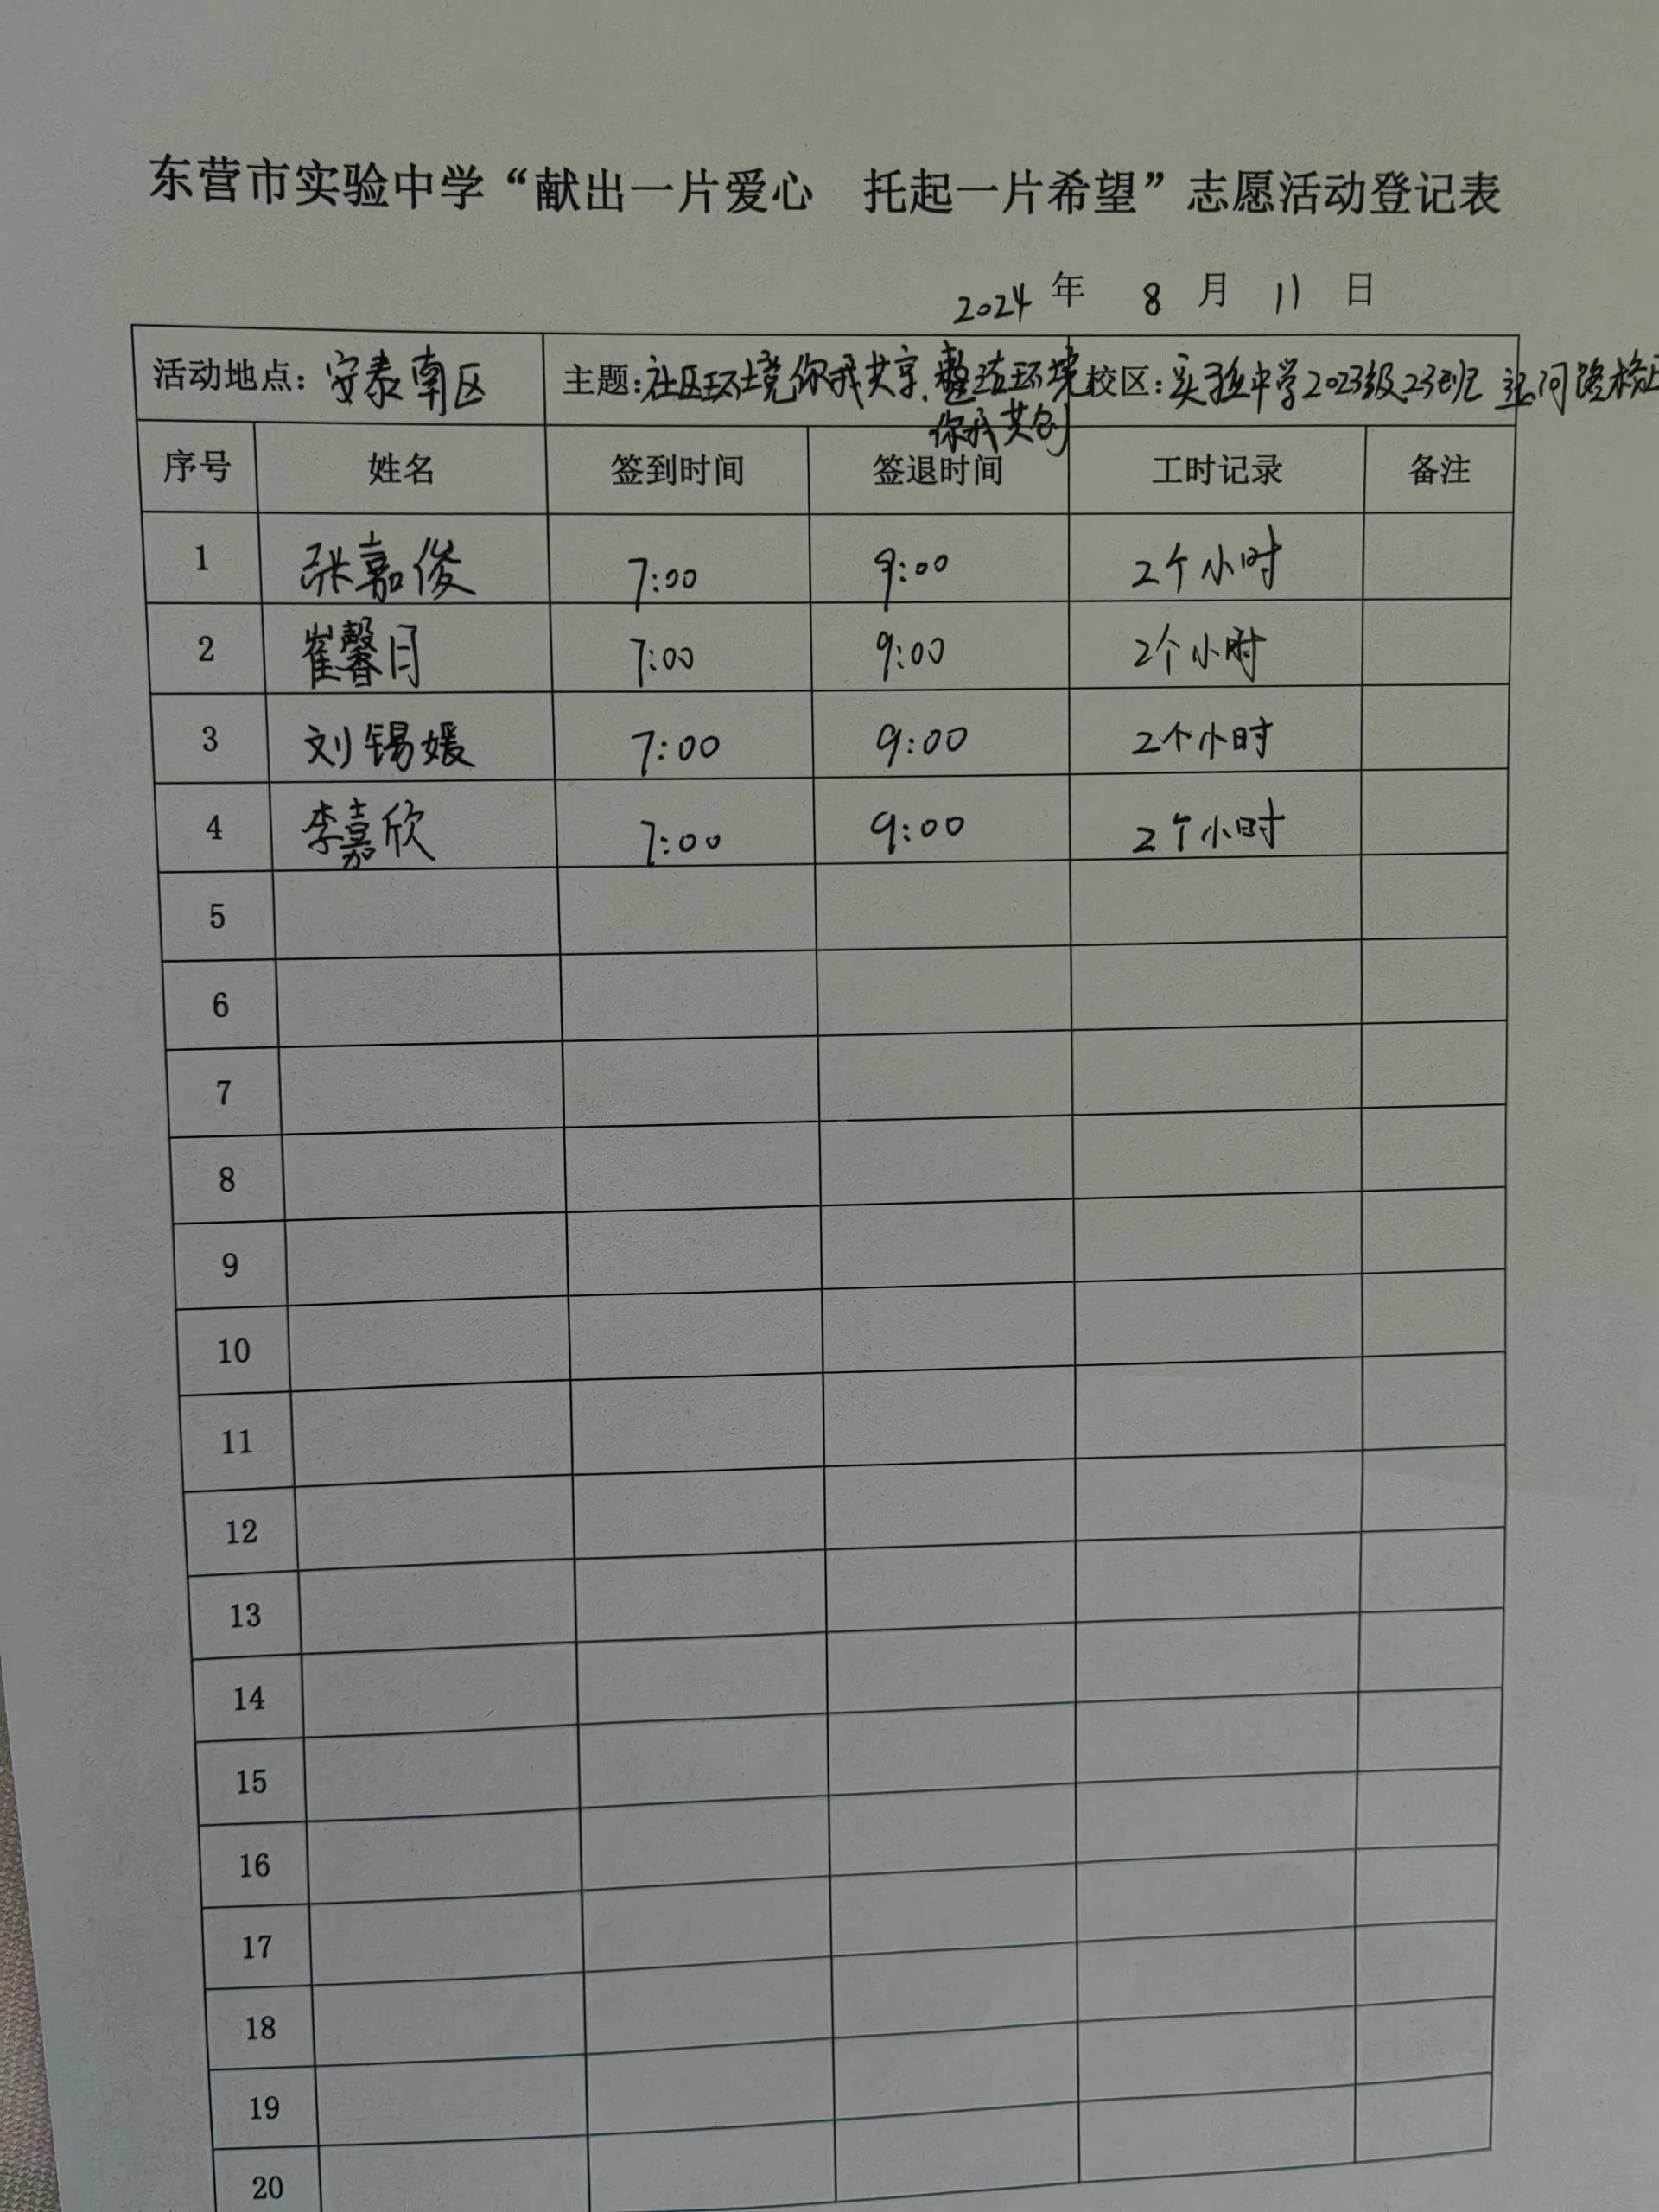 东营市实验中学“献出一片爱心 托起一片希望”志愿活动登记表
2024 年 8 月 11 日
活动地点：安泰南区 主题：社区环境你我共享.整洁环境你我共创 校区：实验中学2023级23班 运河路校区
序号 姓名 签到时间 签退时间 工时记录 备注
1 张嘉俊 7:00 9:00 2个小时
2 崔馨月 7:00 9:00 2个小时
3 刘锡媛 7:00 9:00 2个小时
4 李嘉欣 7:00 9:00 2个小时
5
6
7
8
9
10
11
12
13
14
15
16
17
18
19
20